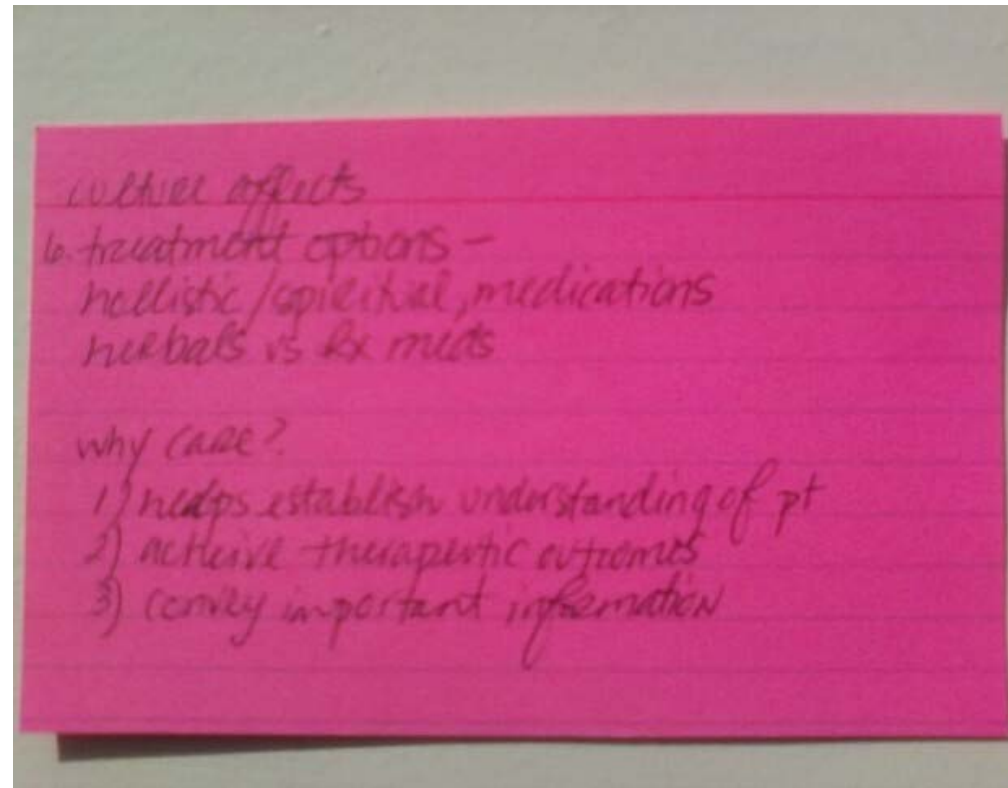 culture affects
6. treatment options -
hollistic/spiritual, medications
herbals vs Rx meds
why care?
1) helps establish understanding of pt
2) acheive therapeutic outcomes
3) convey important information